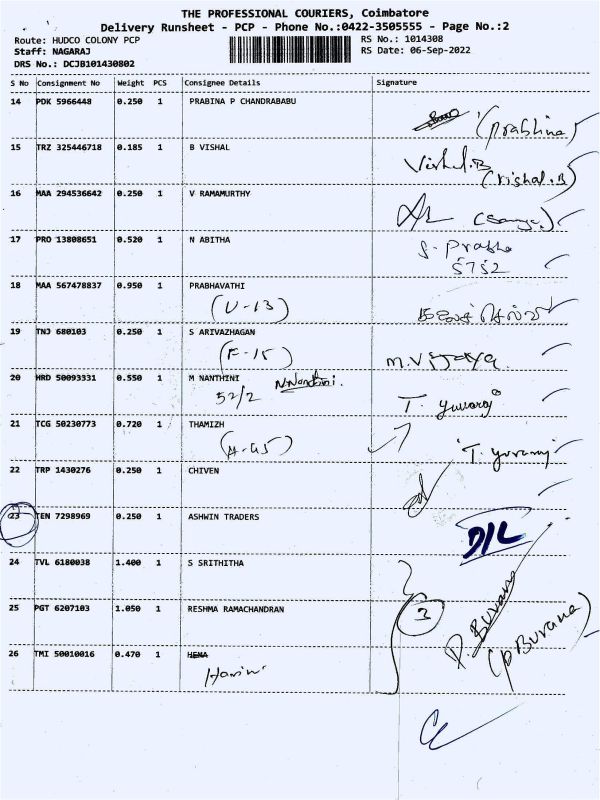 THE PROFESSIONAL COURIERS, Coimbatore
Delivery Runsheet - PCP - Phone No.:0422-3505555 - Page No.:2
Route: HUDCO COLONY PCP RS No.: 1014308
Staff: NAGARAJ RS Date: 06-Sep-2022
DRS No.: DCJB101430802
S No Consignment No Weight PCS Consignee Details Signature
14 PDK 5966448 0.250 1 PRABINA P CHANDRABABU
(Prabhina)
15 TRZ 325446718 0.185 1 B VISHAL Vishal.B
(Vishal.B)
16 MAA 294536642 0.250 1 V RAMAMURTHY
17 PRO 13808651 0.520 1 N ABITHA S. Prabha
5752
18 MAA 567478837 0.950 1 PRABHAVATHI
(U-13)
19 TNJ 680103 0.250 1 S ARIVAZHAGAN
(F-15) M.Vijaya
20 HRD 50093331 0.550 1 M NANTHINI N.Nanthini.
52/2 T. yuvaraj
21 TCG 50230773 0.720 1 THAMIZH
(A-95) T. yuvaraj
22 TRP 1430276 0.250 1 CHIVEN
23 TEN 7298969 0.250 1 ASHWIN TRADERS
D/L
24 TVL 6180038 1.400 1 S SRITHITHA
25 PGT 6207103 1.050 1 RESHMA RAMACHANDRAN 3
P. Buvana
(P Buvana)
26 TMI 50010016 0.470 1 HEMA
Harini